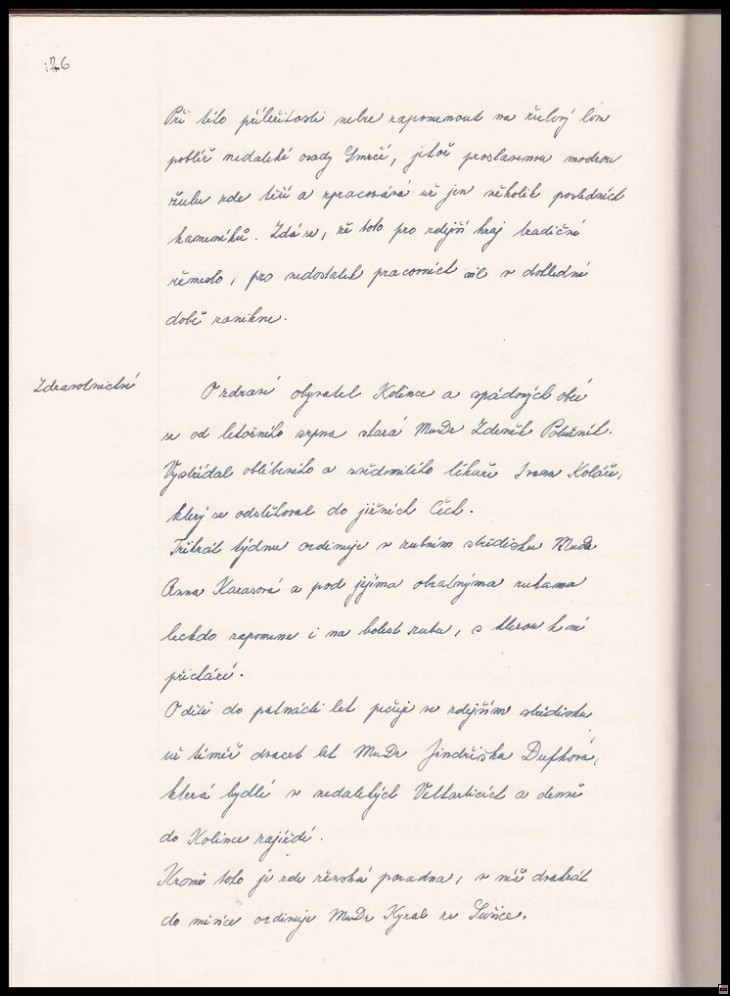 126
Při této příležitosti nelze zapomenout na žulový lom
poblíž nedaleké osady Smrčí, jehož proslavenou modrou
žulu zde těží a zpracovává už jen několik posledních
kameníků. Zdá se, že toto pro zdejší kraj tradiční
řemeslo, pro nedostatek pracovních sil v dohledné
době zanikne.
Zdravotnictví
O zdraví obyvatel Kolince a spádových obcí
se od letošního srpna stará MuDr Zdeněk
Vystřídal oblíbeného a svědomitého lékaře Ivana Koláře,
který se odstěhoval do jižních Čech.
Třikrát týdnu ordinuje v zubním středisku MuDr
Anna Karasová a pod jejíma obratnýma rukama
leckdo zapomene i na bolest zubu, s kterou k ní
přichází.
O děti do patnácti let pečuje ve zdejším středisku
už téměř dvacet let MuDr Jindřiška Dufková,
která bydlí v nedalekých Velharticích a denně
do Kolince zajíždí.
Kromě toho je zde ženská poradna, v níž dvakrát
do měsíce ordinuje MuDr Kyral ze Sušice.